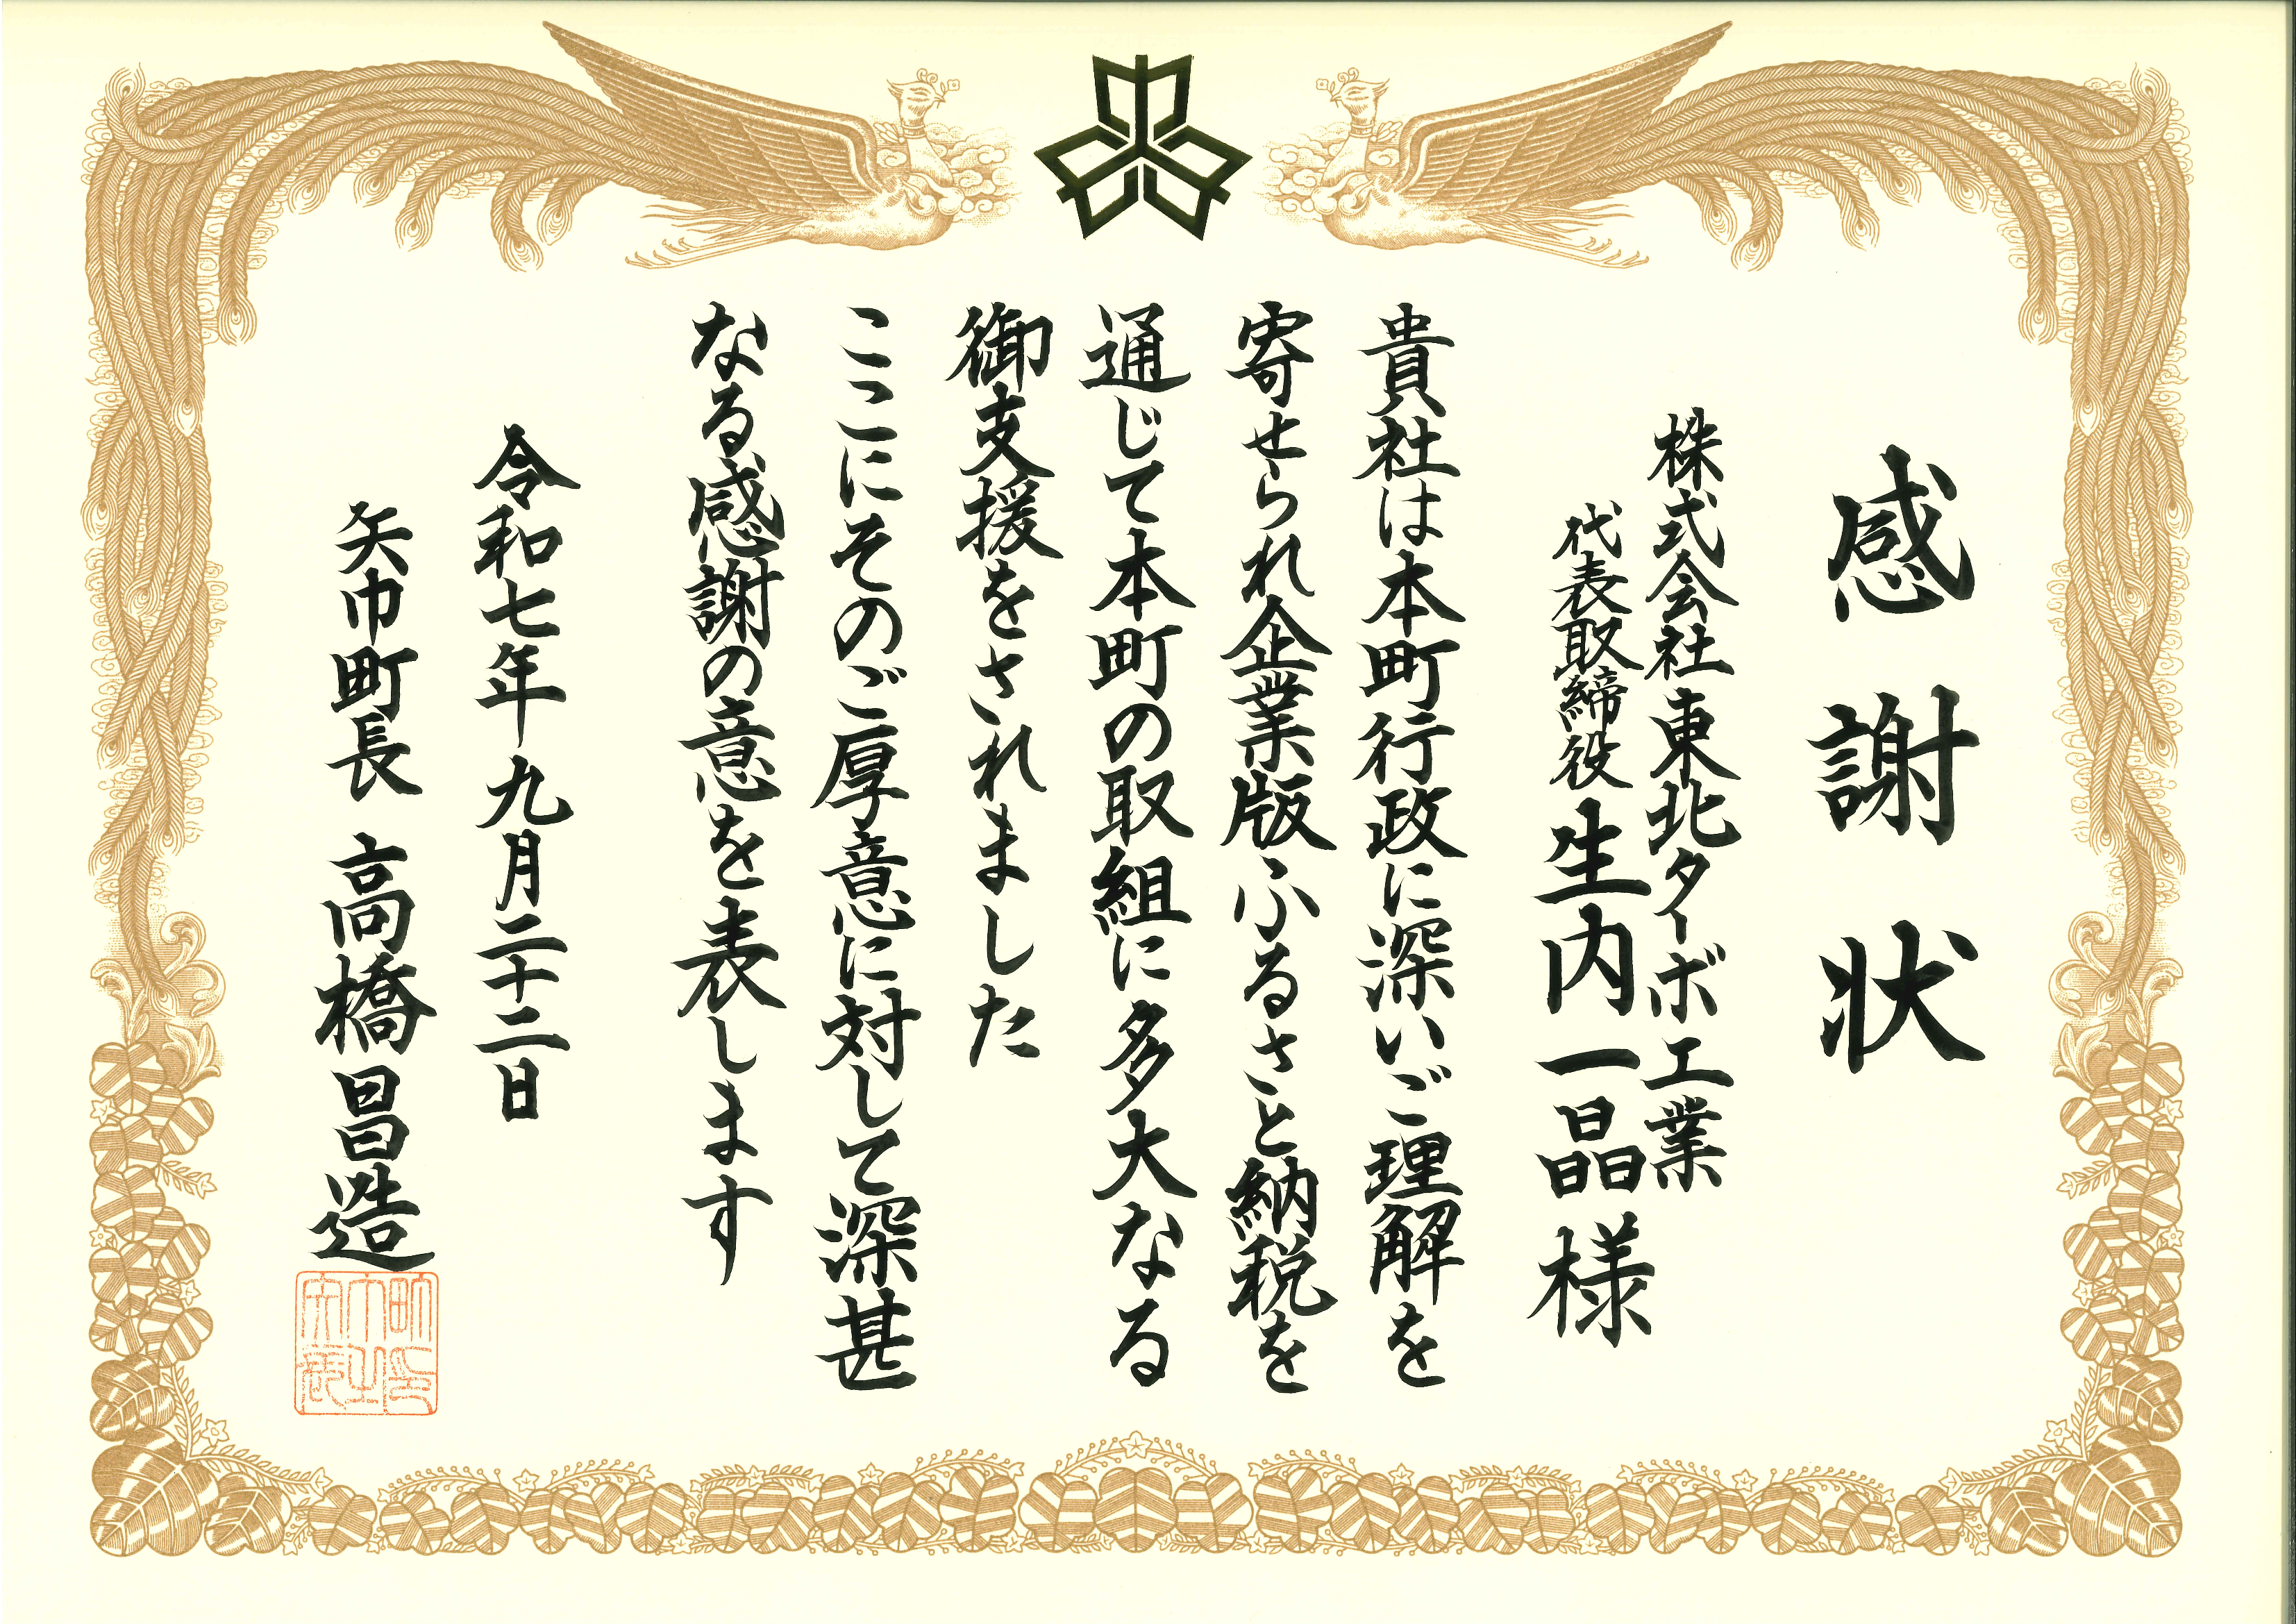 感謝状
株式会社東北ターボ工業
代表取締役 生内一晶様
貴社は本町行政に深いご理解を
寄せられ企業版ふるさと納税を
通じて本町の取組に多大なる
御支援をされました
ここにそのご厚意に対して深甚
なる感謝の意を表します
令和七年九月二十二日
矢巾町長 高橋昌造